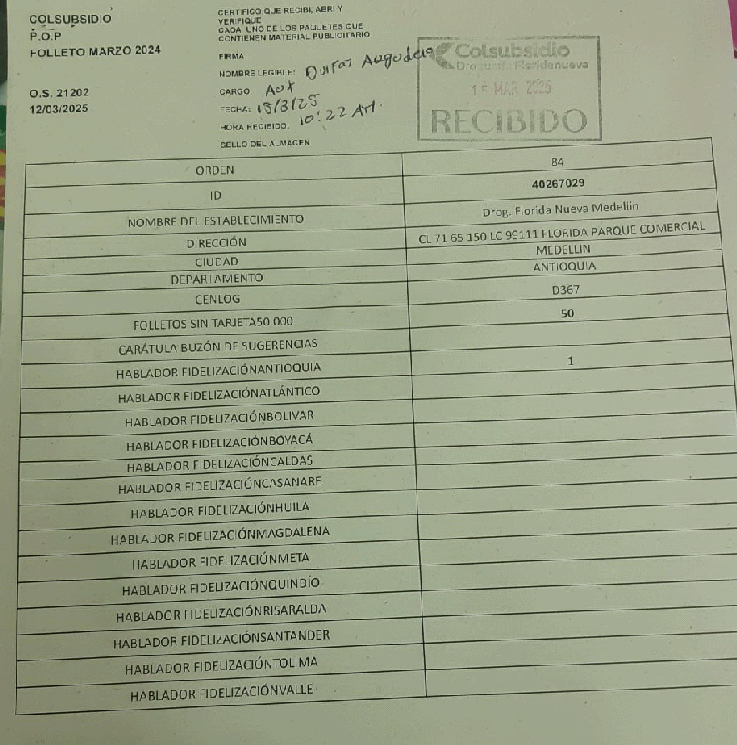 COLSUBSIDIO
P.O.P
FOLLETO MARZO 2024
O.S. 21202
12/03/2025
CERTIFICO QUE RECIBI, ABRI Y
VERIFIQUE
CADA UNO DE LOS PAQUETES QUE
CONTIENEN MATERIAL PUBLICITARIO
FIRMA
NOMBRE LEGIBLE:
CARGO Aux
FECHA: 15/3/25
HORA RECIBIDO: 10:22 AM.
SELLO DEL ALMACEN
Colsubsidio
15 MAR 2025
RECIBIDO
ORDEN 84
ID 40267029
NOMBRE DEL ESTABLECIMIENTO Drog. Florida Nueva Medellin
DIRECCIÓN CL 71 65 150 LC 99111 FLORIDA PARQUE COMERCIAL
CIUDAD MEDELLIN
DEPARTAMENTO ANTIOQUIA
CENLOG D367
FOLLETOS SIN TARJETA50.000 50
CARÁTULA BUZÓN DE SUGERENCIAS
HABLADOR FIDELIZACIÓNANTIOQUIA 1
HABLADOR FIDELIZACIÓNATLÁNTICO
HABLADOR FIDELIZACIÓNBOLIVAR
HABLADOR FIDELIZACIÓNBOYACÁ
HABLADOR FIDELIZACIÓNCALDAS
HABLADOR FIDELIZACIÓNCASANARE
HABLADOR FIDELIZACIÓNHUILA
HABLADOR FIDELIZACIÓNMAGDALENA
HABLADOR FIDELIZACIÓNMETA
HABLADOR FIDELIZACIÓNQUINDÍO
HABLADOR FIDELIZACIÓNRISARALDA
HABLADOR FIDELIZACIÓNSANTANDER
HABLADOR FIDELIZACIÓNTOLIMA
HABLADOR FIDELIZACIÓNVALLE